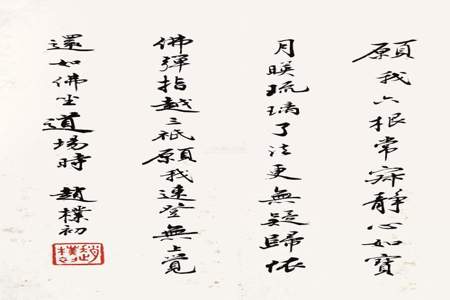 願我六根常寂静心如寶
月暎琉璃了法更無疑歸依
佛彈指越三祇願我速登無上覺
還如佛坐道場時 趙樸初